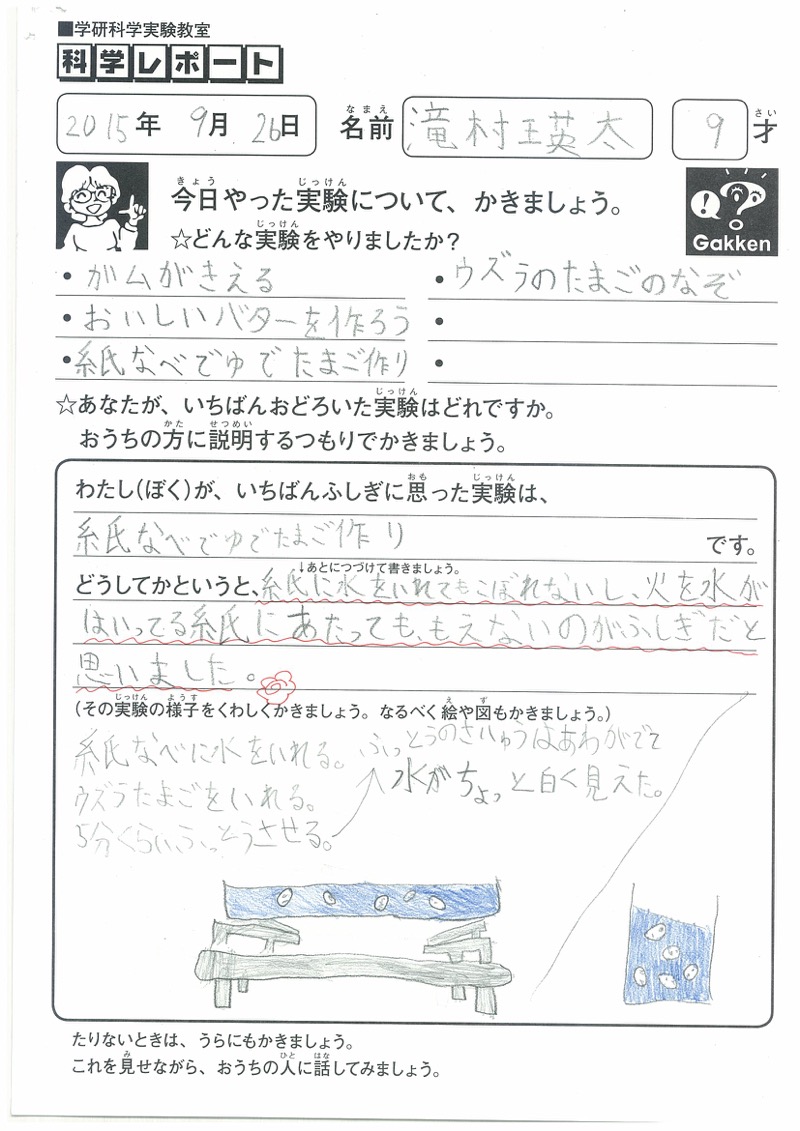 ■学研科学実験教室
科学レポート
2015年 9月 26日 名前 滝村瑛太 9才
なまえ さい
きょう じっけん
今日やった実験について、かきましょう。
じっけん
☆どんな実験をやりましたか?
Gakken
・ガムがきえる
・おいしいバターを作ろう
・紙なべでゆでたまご作り
・ウズラのたまごのなぞ
・
・
じっけん
☆あなたが、いちばんおどろいた実験はどれですか。
かた せつめい
おうちの方に説明するつもりでかきましょう。
おも じっけん
わたし(ぼく)が、いちばんふしぎに思った実験は、
紙なべでゆでたまご作り です。
↓あとにつづけて書きましょう。
どうしてかというと、紙に水をいれてもこぼれないし、火を水が
はいってる紙にあたっても、もえないのがふしぎだと
思いました。
じっけん ようす え ず
(その実験の様子をくわしくかきましょう。なるべく絵や図もかきましょう。)
紙なべに水をいれる。
ウズラたまごをいれる。
5分くらいふっとうさせる。
ふっとうのさいちゅうはあわがでて
水がちょっと白く見えた。
たりないときは、うらにもかきましょう。
み ひと はな
これを見せながら、おうちの人に話してみましょう。